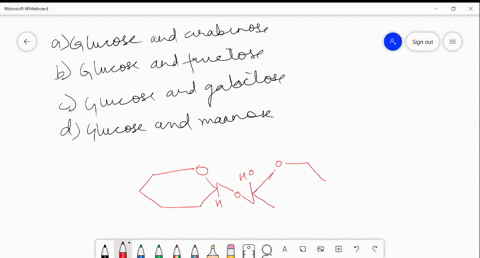 Microsoft Whiteboard
a) Glucose and arabinose
Sign out
b) Glucose and fructose
c) Glucose and galactose
d) Glucose and mannose
O
O
H O
H
O
A